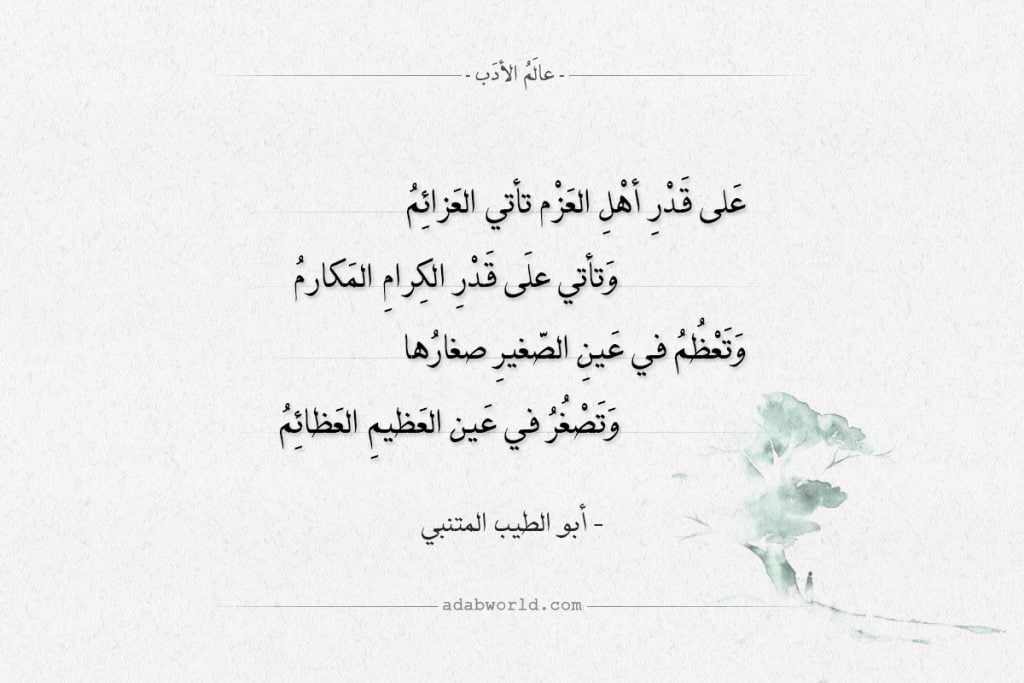 - عالَمُ الأدَب -
عَلى قَدْرِ أهْلِ العَزْم تأتي العَزائِمُ
وَتأتي علَى قَدْرِ الكِرامِ المَكارمُ
وَتَعْظُمُ في عَينِ الصّغيرِ صغارُها
وَتَصْغُرُ في عَين العَظيمِ العَظائِمُ
- أبو الطيب المتنبي
adabworld.com